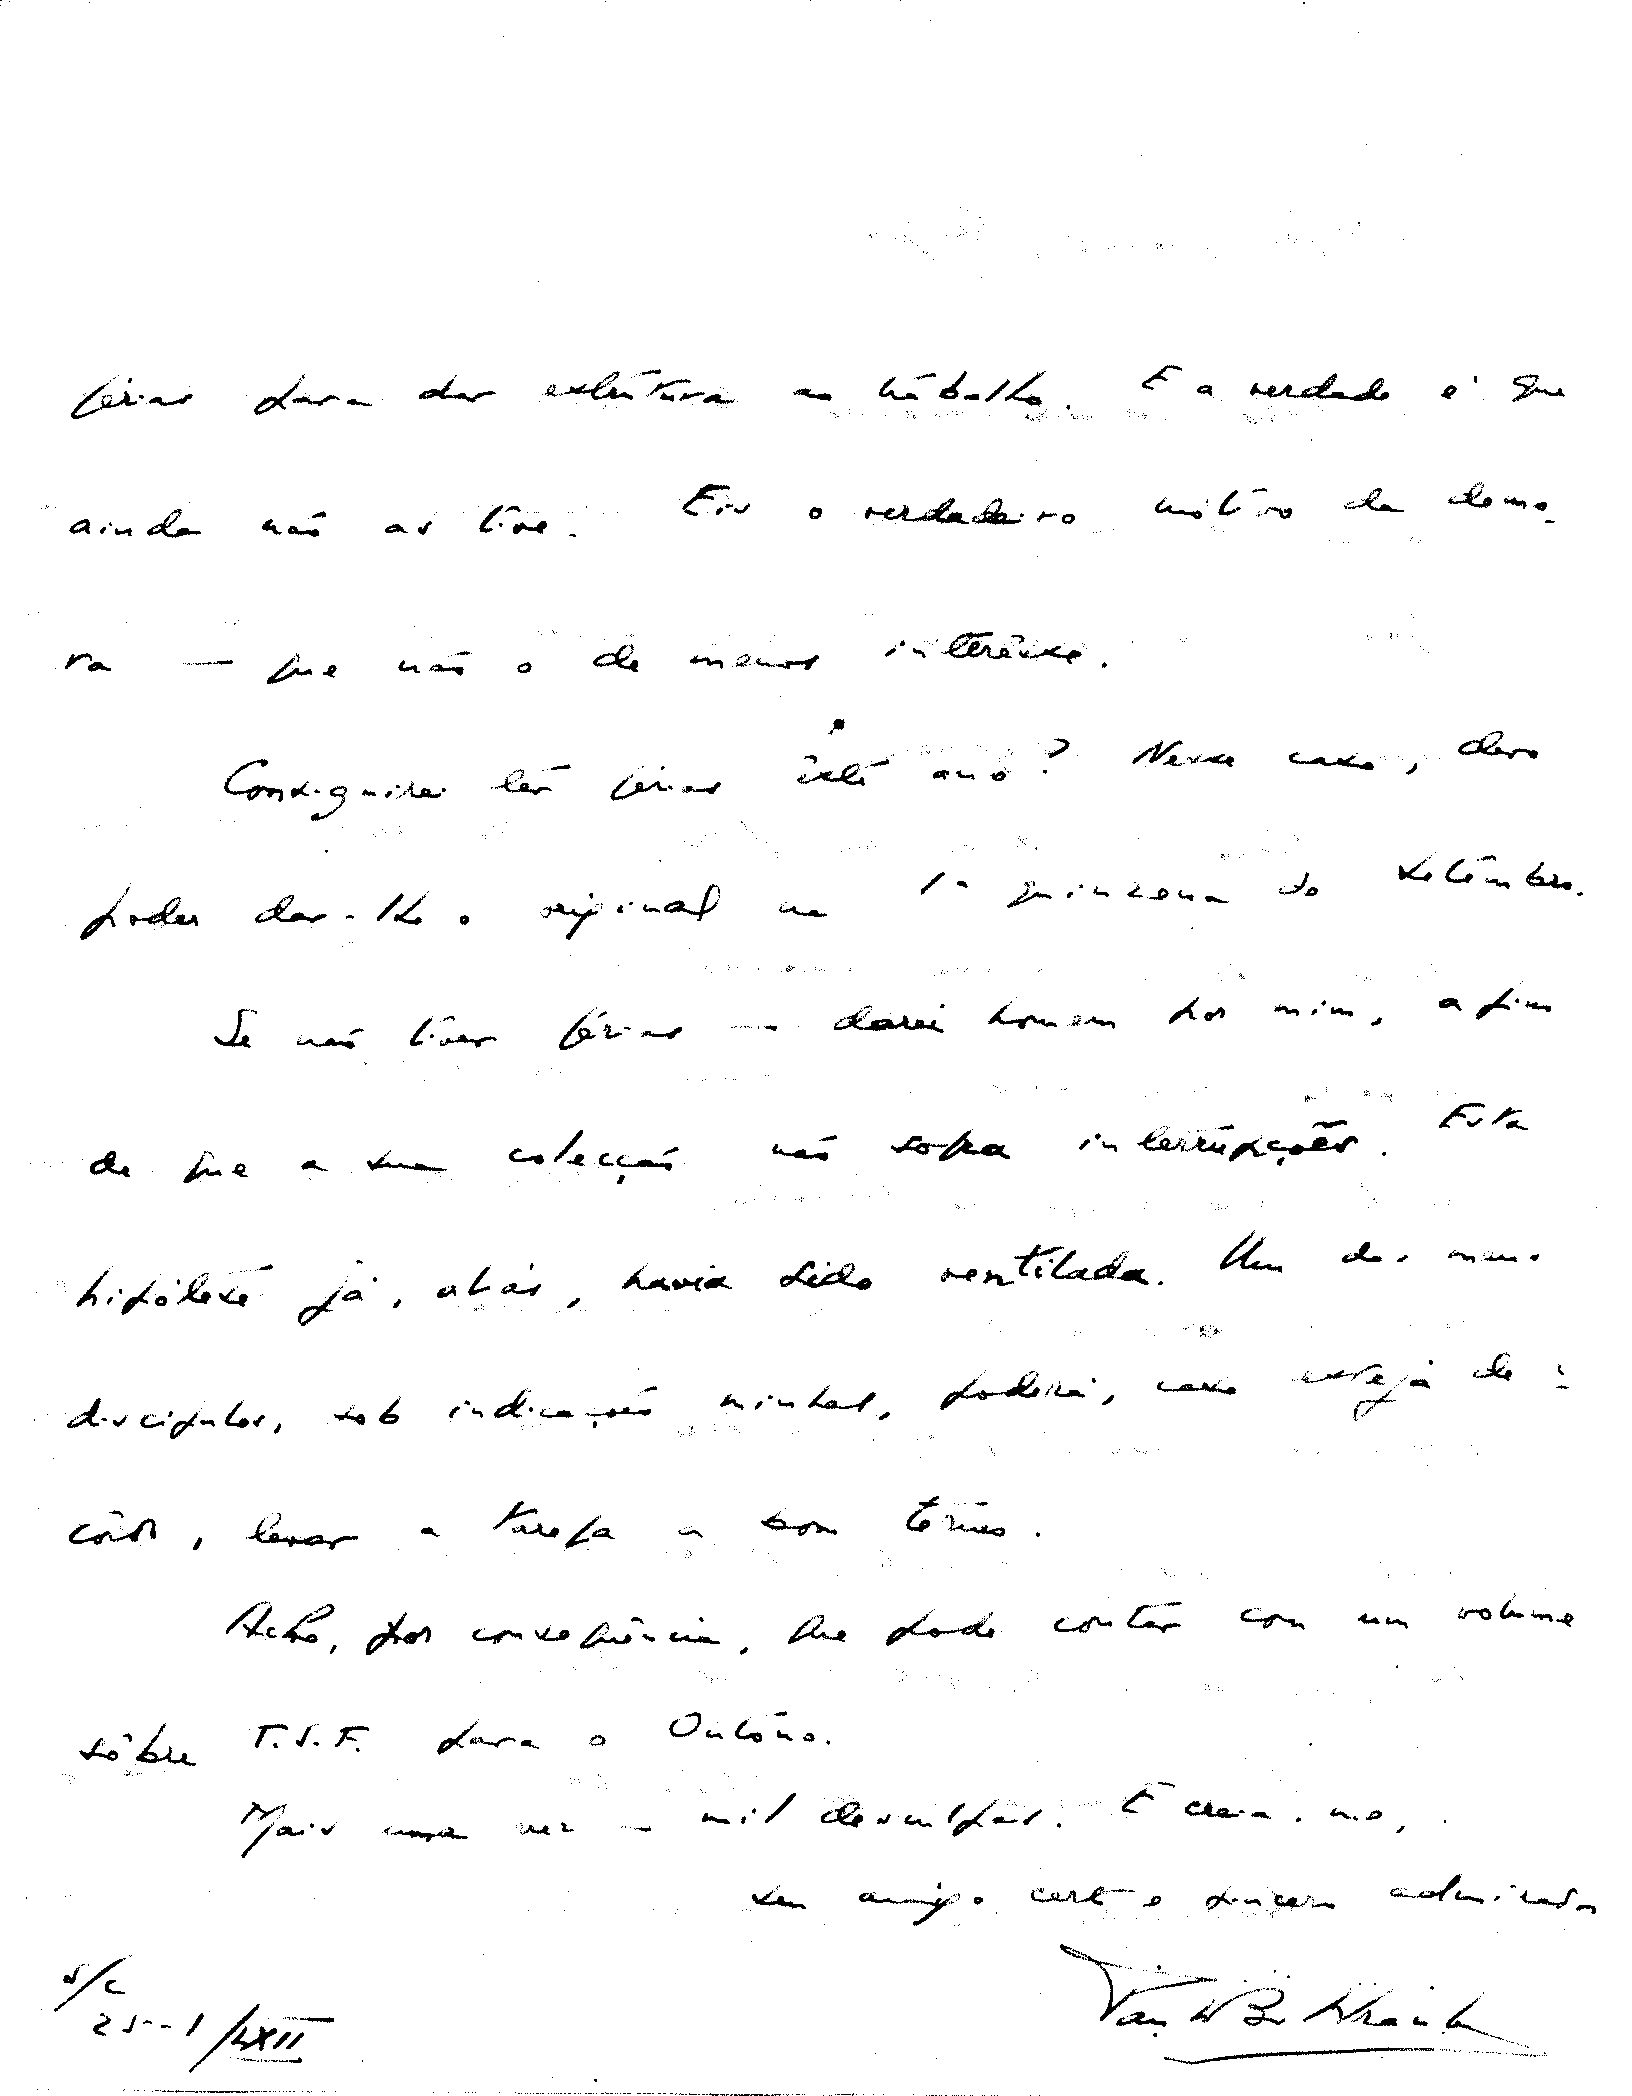 férias para dar estrutura ao trabalho. E a verdade é que
ainda não as tive. Eis o verdadeiro motivo da demo-
ra — que não o de menos interêsse.
Conseguirei ter férias êste ano? Nesse caso, devo
poder dar-lhe o original na 1ª quinzena de Setembro.
Se não tiver férias — darei homem por mim, a fim
de que a sua colecção não sofra interrupções. Esta
hipótese já, aliás, havia sido ventilada. Um dos meus
discípulos, sob indicações minhas, poderá, caso esteja de a-
côrdo, levar a tarefa a bom têrmo.
Acho, por consequência, que pode contar com um volume
sôbre T.S.F. para o Outono.
Mais uma vez — mil desculpas. E creia-me,
seu amigo certo e sincero admirador
s/c
25-1/